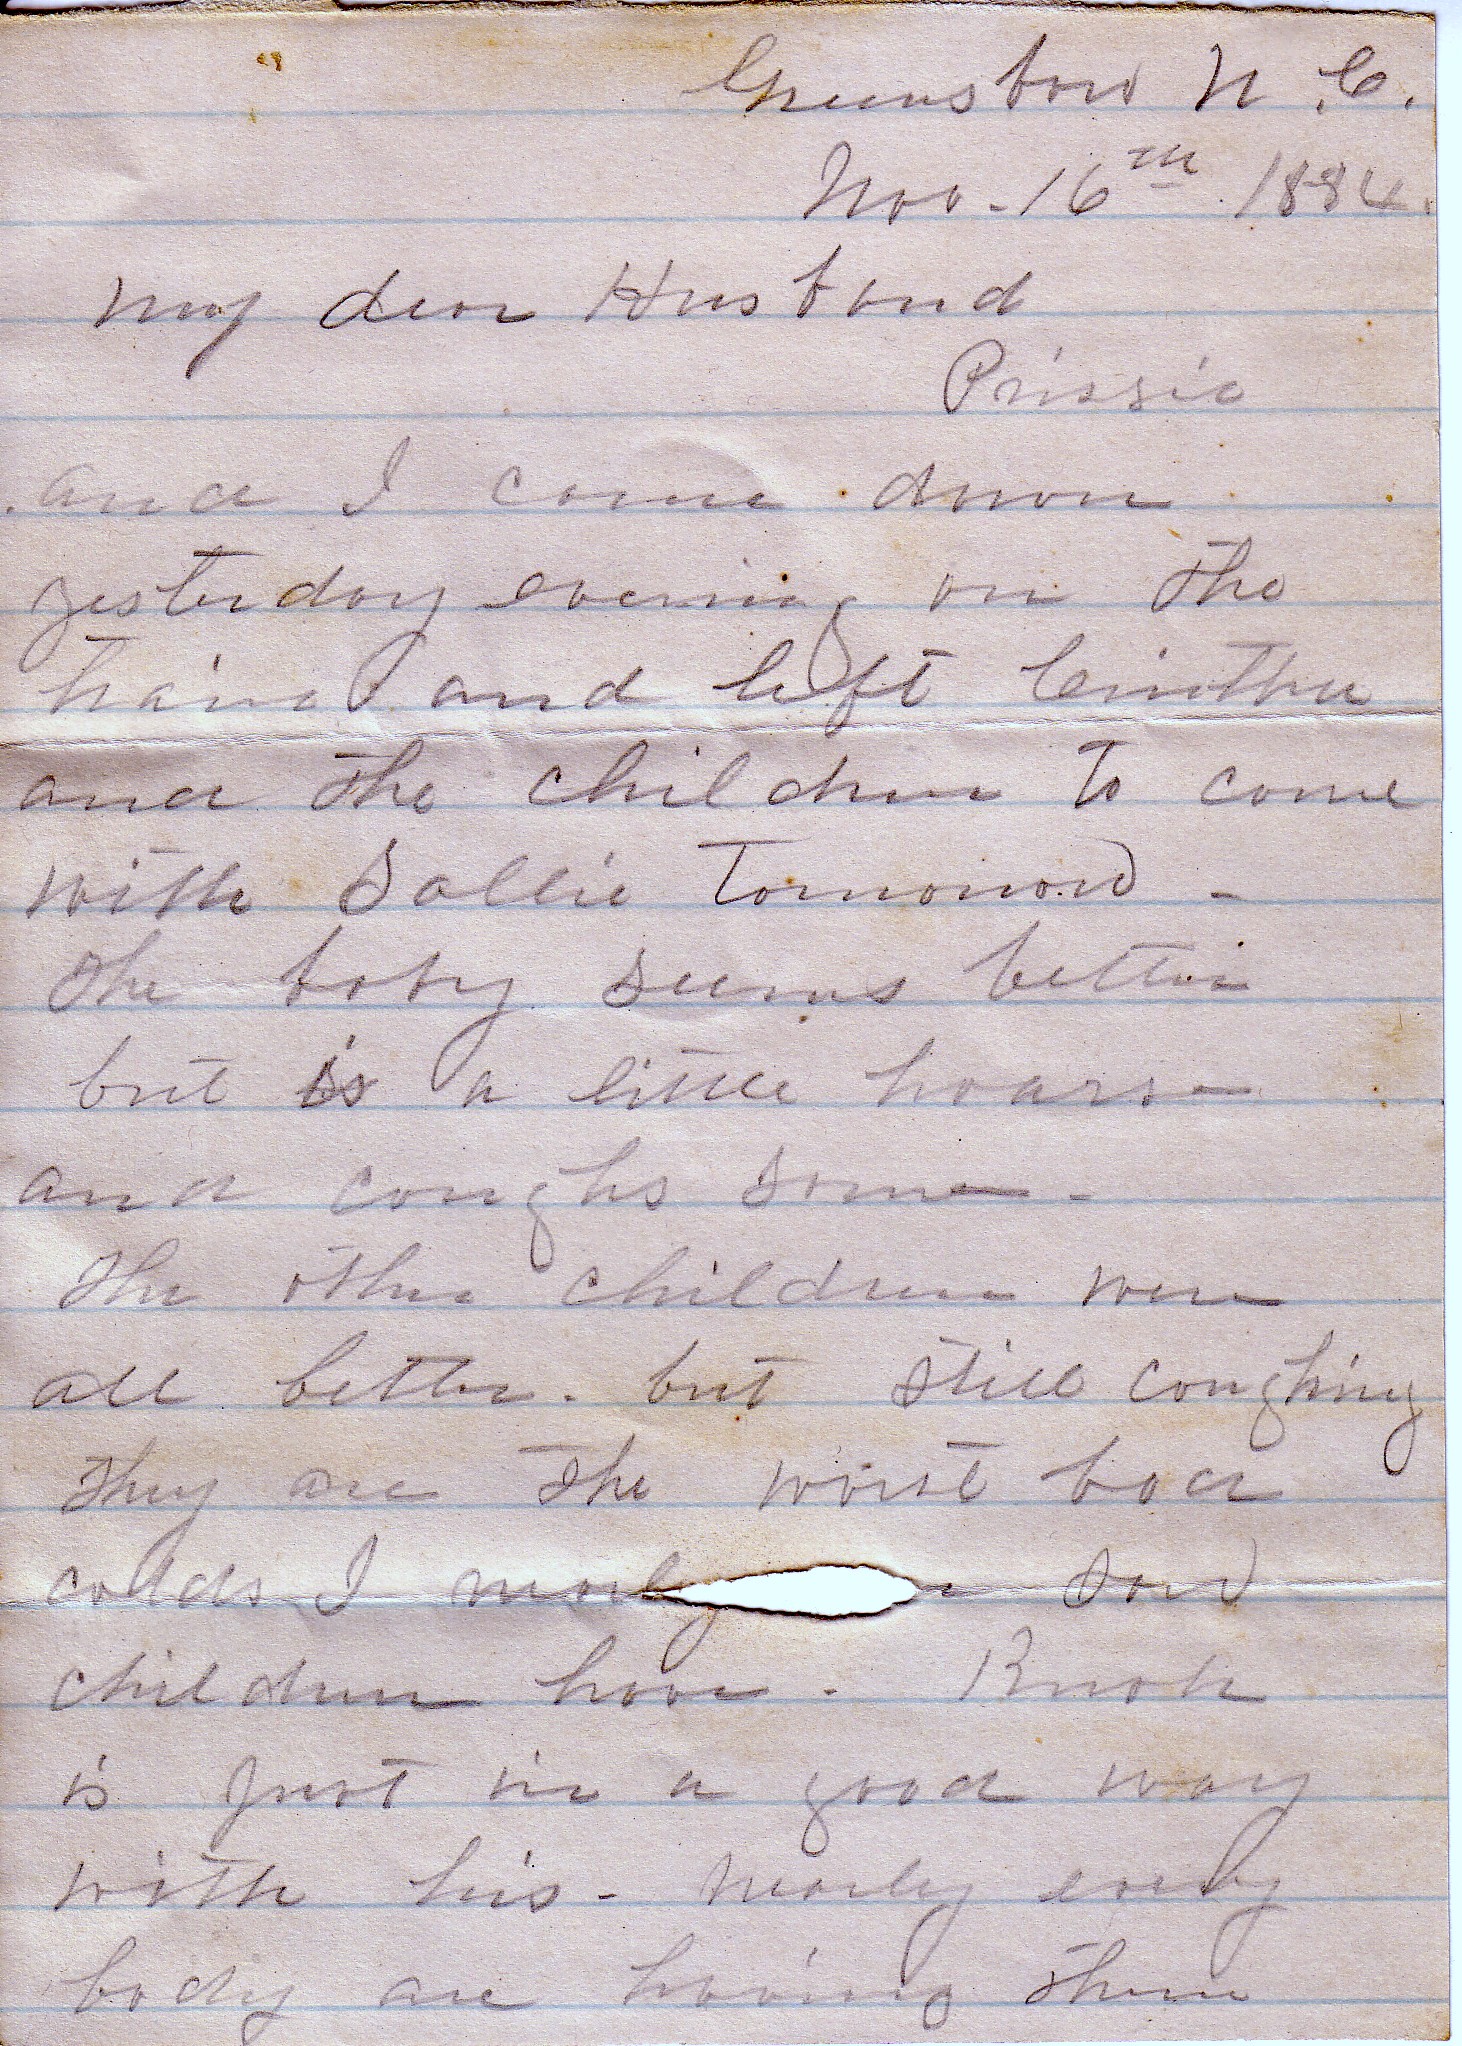 Greensboro N.C.
Nov. 16th 1884.
My dear Husband
Prissie
and I come down
yesterday evening on the
train and left Cinthia
and the children to come
with Sallie Tomorrow -
The baby seems better
but is a little hoarse
and coughs some -
The other children were
all better - but still coughing
They are the worst bad
colds I nearly saw
children have -
is just in a good way
with his - nearly every
body are having them